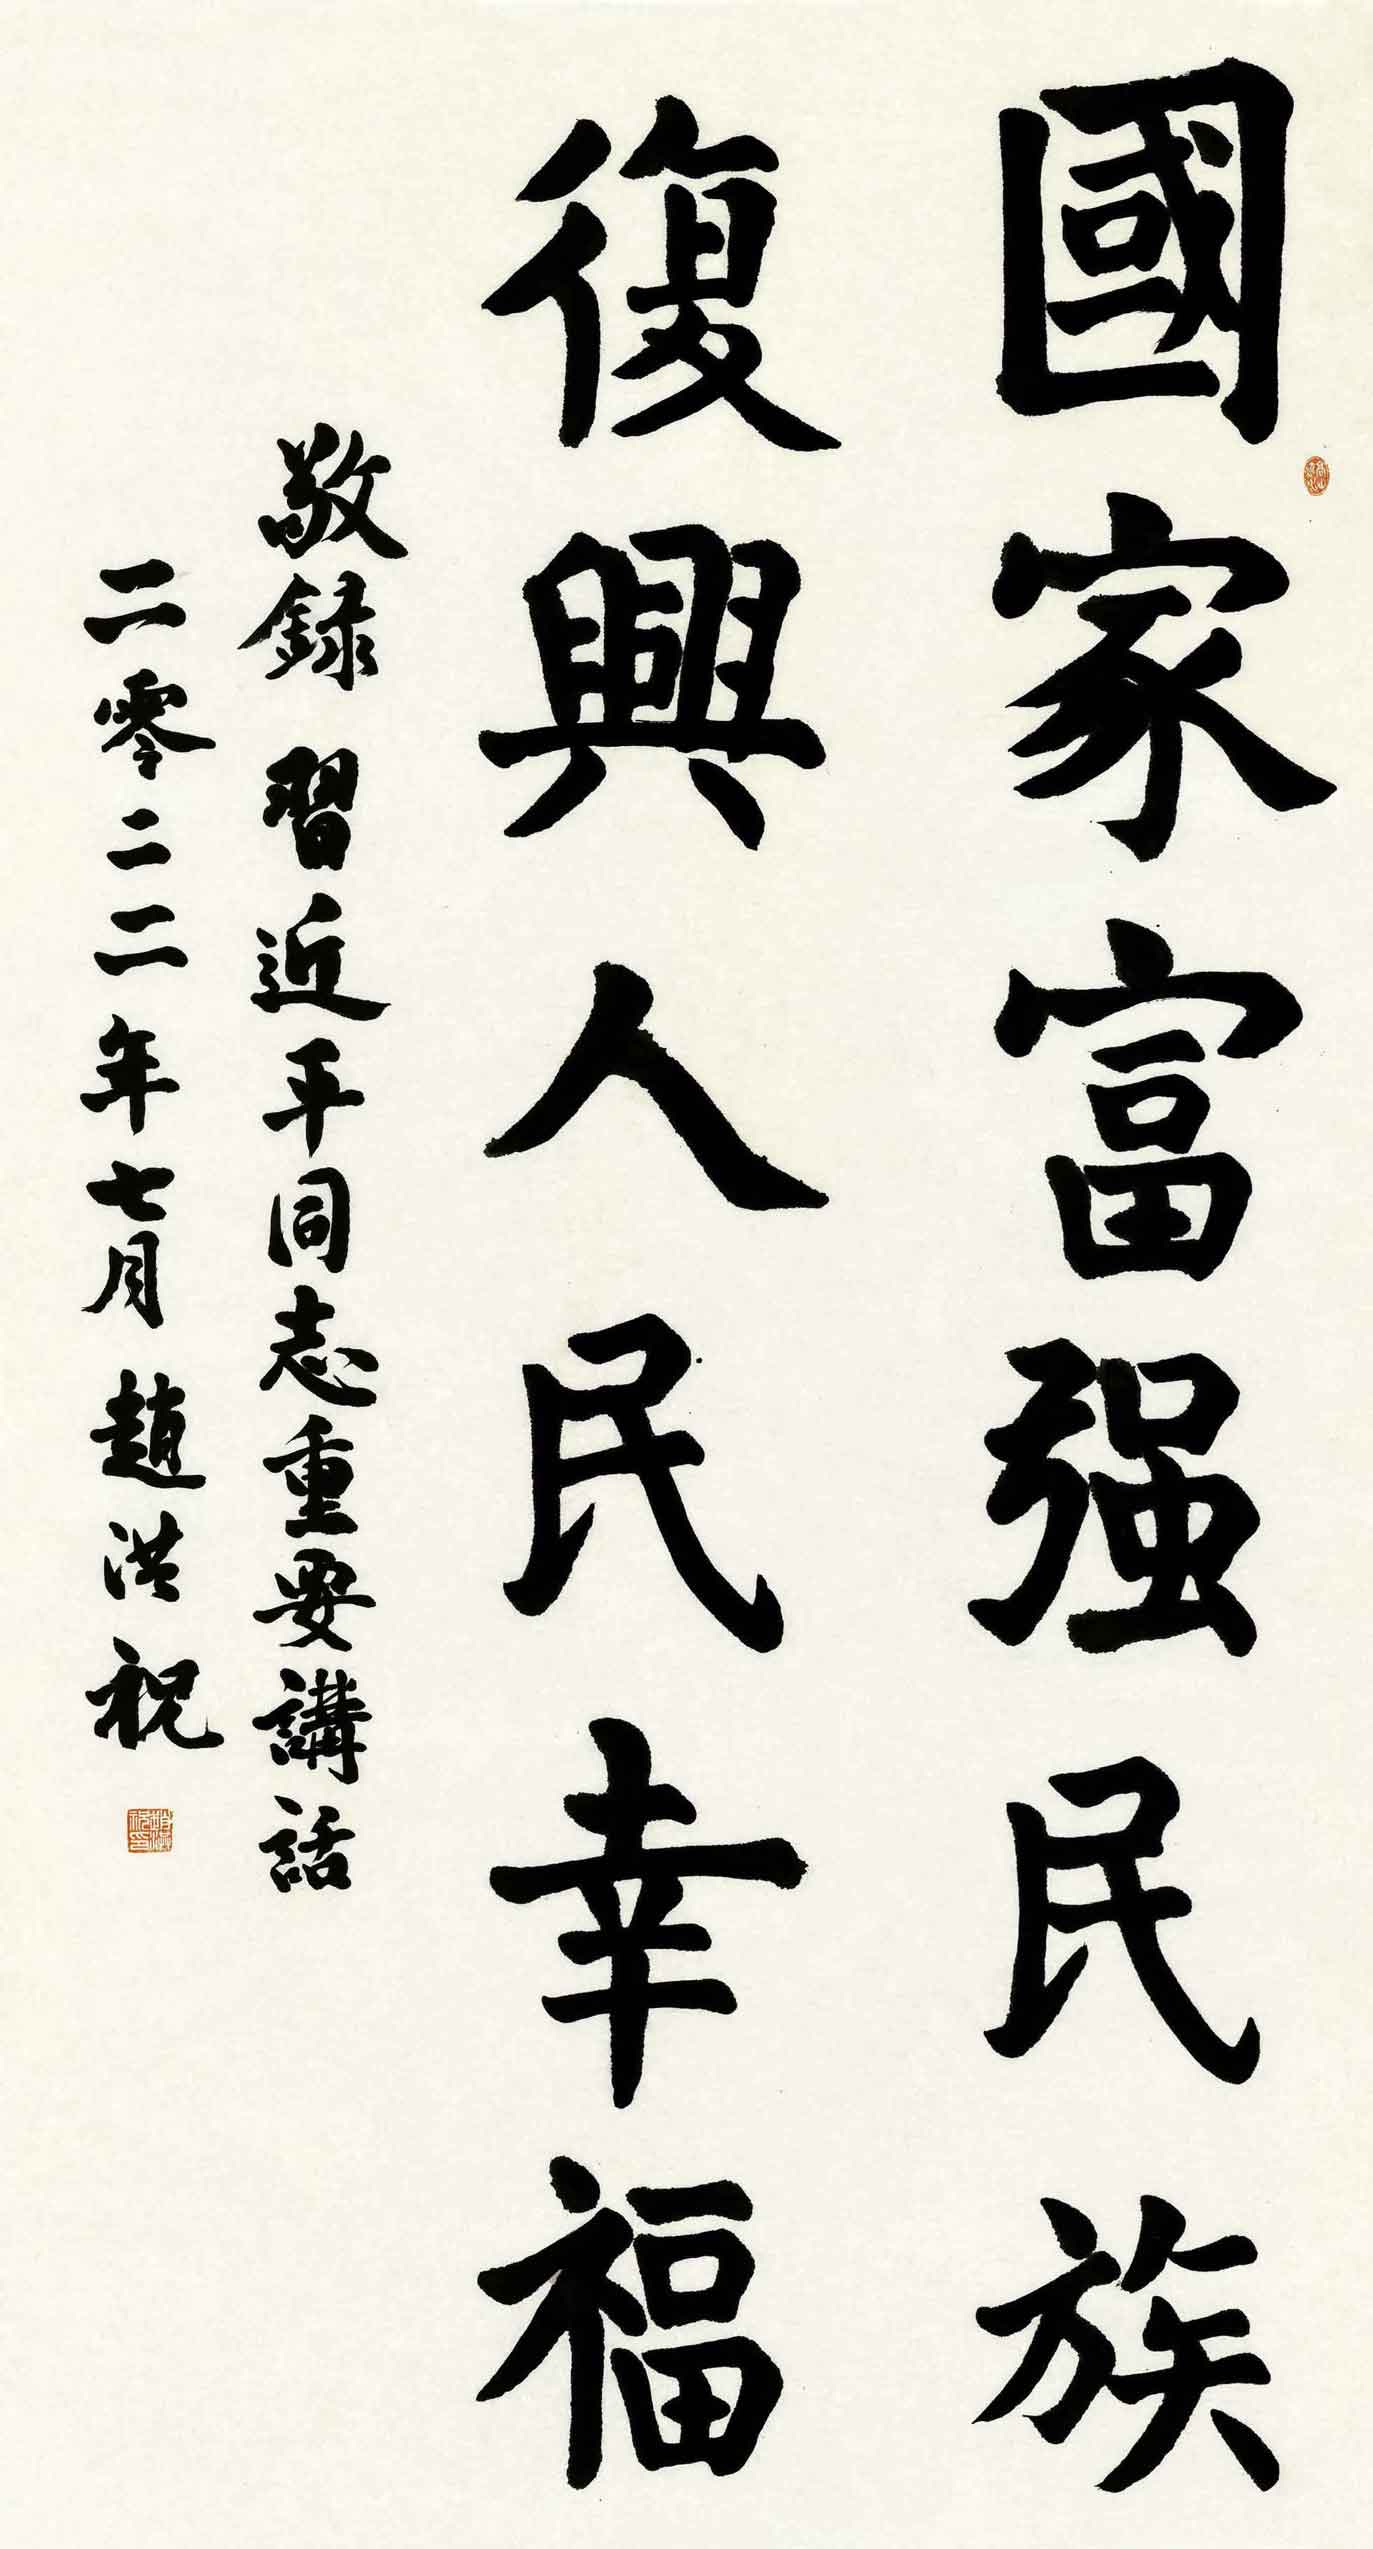 國家富强民族
復興人民幸福
敬録 習近平同志重要講話
二零二二年七月 趙洪祝
趙洪祝印